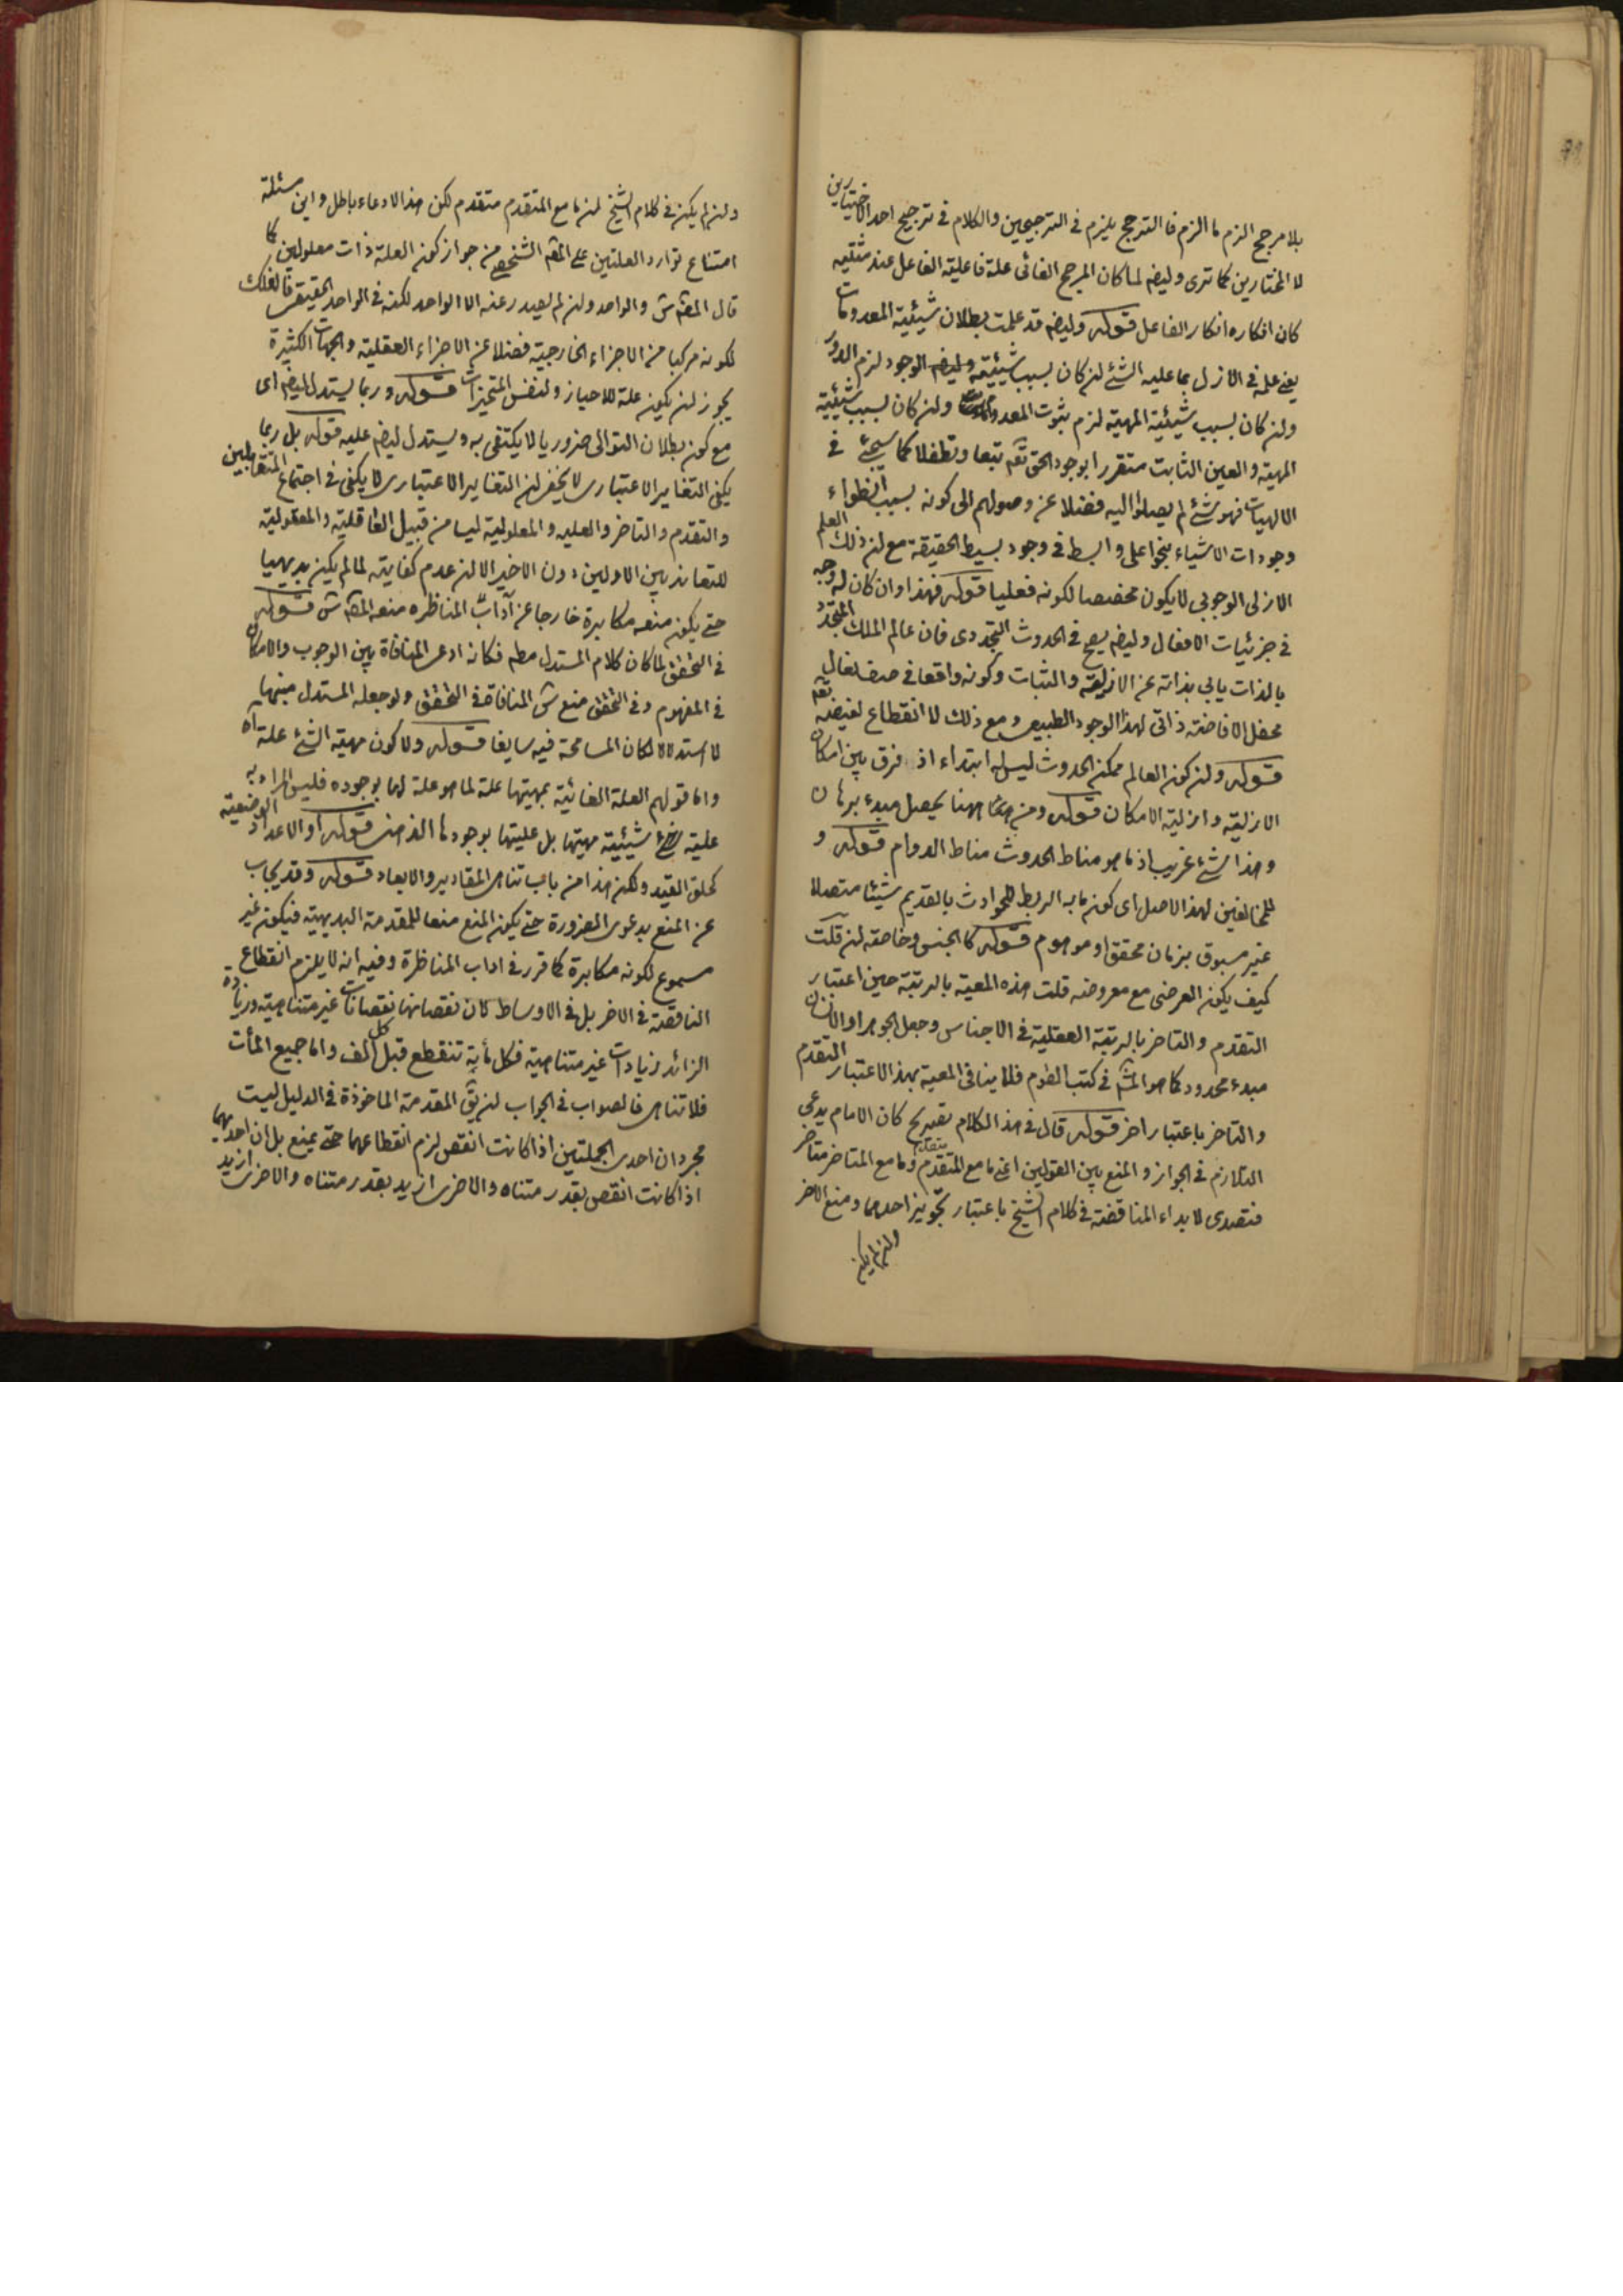 بلا مرجح الزم ما الزم فالترجح يلزم في الترجيحين والكلام في ترجيح احد الاختيارين
لا المختارين كما ترى وايضا لما كان المرجح الغائى علة فاعلية الفاعل عند مثبتيه
كان انكاره انكار الفاعل قوله وايضا قد علمت بطلان شيئية المعدومات
يعنى علمه في الازل بما عليه الشئ ان كان بسبب شيئيته وايضا الوجود لزم الدور
وان كان بسبب شيئية المهية لزم ثبوت المعدومات وان كان بسبب شيئية
المهية والعين الثابت متقررا بوجود الحق تعم تبعا وتطفلا كما سيجئ في
الالهيات فهو شئ لم يصلوا اليه فضلا عن وصولهم الى كونه بسبب انطواء
وجودات الاشياء بنحو اعلى وابسط في وجود بسيط الحقيقة مع ان ذلك العلم
الازلى الوجوبي لا يكون مخصصا لكونه فعليا قوله فهذا وان كان له وجه
في جزئيات الافعال وايضا يصح في الحدوث التجددى فان عالم الملك المتجدد
بالذات يابى بذاته عن الازلية والثبات وكونه واقعا في صف نعال
محفل الافاضة ذاتى لهذا الوجود الطبيعى ومع ذلك لا انقطاع لفيضه تعم
قوله وان كون العالم ممكن الحدوث ليس له ابتداء اذ فرق بين امكان
الازلية وازلية الامكان قوله ومن ههنا يحصل مبدء برهان
وهذا شئ غريب اذ ما هو مناط الحدوث مناط الدوام قوله و
للمخالفين لهذا الاصل اى كون ما به الربط للحوادث بالقديم شيئا متصلا
غير مسبوق بزمان محقق او موهوم قوله كالجنس وخاصته ان قلت
كيف يكون العرضى مع معروضه قلت هذه المعية بالرتبة حين اعتبار
التقدم والتاخر بالرتبة العقلية في الاجناس وجعل الجوهر او الانسان
مبدء محدود كما هو المش في كتب القوم فلا ينافى المعية بهذا الاعتبار التقدم
والتاخر باعتبار اخر قوله قال في هذا الكلام تصريح كان الامام يدعى
التلازم في الجواز والمنع بين القولين اعنى ما مع المتقدم متقدم وما مع المتاخر متاخر
فتصدى لابداء المناقضة في كلام الشيخ باعتبار تجويز احدهما ومنع الاخر
وان لم يكن
وان لم يكن في كلام الشيخ ان ما مع المتقدم متقدم لكن هذا الادعاء باطل واين مسئلة
امتناع توارد العلتين على المعم الشخصى من جواز كون العلة ذات معلولين كما
قال المصم ش والواحد وان لم يصدر عنه الا الواحد لكنه في الواحد الحقيقى فالفلك
لكونه مركبا من الاجزاء الخارجية فضلا عن الاجزاء العقلية والجهات الكثيرة
يجوز ان يكون علة للاحياز ولنفس المتحيزات قوله وربما يستدل ايضا اى
مع كون بطلان التوالى ضروريا لا يكتفى به ويستدل ايضا عليه قوله بل ربما
يكفى التغاير الاعتبارى لا يخفى ان التغاير الاعتبارى لا يكفى في اجتماع المتقابلين
والتقدم والتاخر والعلية والمعلولية ليسا من قبيل العاقلية والمعقولية
للتعاند بين الاولين دون الاخير الا ان عدم كفايته لما لم يكن بديهيا
حتى يكون منعه مكابرة خارجا عن آداب المناظره منعه المصم ش قوله
في التحقق لما كان كلام المستدل مطم فكانه ادعى المنافاة بين الوجوب والامكان
في المفهوم وفي التحقق منع ش المنافاة في التحقق ولو جعله المستدل مبنيا
لاستدلال لكان المسامحة فيه سايغا قوله ولا كون مهية الشئ علة اه
واما قولهم العلة الغائية بمهيتها علة لما هو علة لها بوجوده فليس المراد به
علية شيئية مهيتها بل عليتها بوجودها الذهنى قوله او الاعداد الوضعية
كحلق القيد ولكن هذا من باب تناهى المقادير والابعاد قوله وقد يجاب
عن المنع بدعوى الضرورة حتى يكون المنع منعا للمقدمة البديهية فيكون غير
مسموع لكونه مكابرة كما قرر في اداب المناظرة وفيه انه لا يلزم انقطاع
الناقصة في الاخر بل في الاوساط كان نقصانها نقصانات غير متناهية وزيادة
الزائد زيادات غير متناهية فكل مأية تنقطع قبل كل الف واما جميع المأت
فلا تناهى فالصواب في الجواب ان يق المقدمة الماخوذة في الدليل ليست
مجرد ان احدى الجملتين اذا كانت انقص لزم انقطاعهما حتى يمنع بل ان احديهما
اذا كانت انقص بقدر متناه والاخرى ازيد بقدر متناه والاخرى ازيد